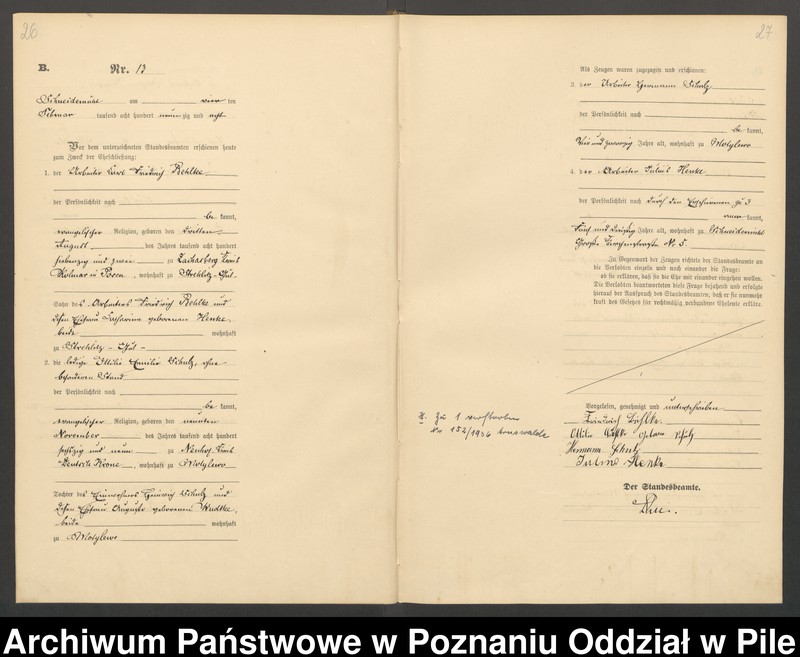 26
B. Nr. 13
Schneidemühl am vier ten
Februar tausend acht hundert neun zig und acht
Vor dem unterzeichneten Standesbeamten erschienen heute
zum Zweck der Eheschließung:
1. der Arbeiter Carl Friedrich
der Persönlichkeit nach
be kannt,
evangelischer Religion, geboren den dritten
August des Jahres tausend acht hundert
siebenzig und zwei zu Zachasberg Kreis
Kolmar in Posen, wohnhaft zu
Sohn des Arbeiters Friedrich und
dessen Ehefrau Catharina geborenen Henke
beide wohnhaft
zu
2. die ledige Ottilie Emilie Schulz, ohne
besonderen Stand
der Persönlichkeit nach
be kannt,
evangelischer Religion, geboren den neunten
November des Jahres tausend acht hundert
sechszig und neun zu Neuhof Kreis
Deutsch Krone, wohnhaft zu Motylewo
Tochter des Einwohners Heinrich Schulz und
dessen Ehefrau Auguste geborenen
beide wohnhaft
zu Motylewo
27
Als Zeugen waren zugezogen und erschienen:
3. der Arbeiter Hermann Schulz
der Persönlichkeit nach
be kannt,
vier und zwanzig Jahre alt, wohnhaft zu Motylewo
4. der Arbeiter Julius Henke
der Persönlichkeit nach durch den Erschienenen zu 3
kannt,
fünf und dreißig Jahre alt, wohnhaft zu Schneidemühl
Große Kirchenstraße Nr 5.
In Gegenwart der Zeugen richtete der Standesbeamte an
die Verlobten einzeln und nach einander die Frage:
ob sie erklären, daß sie die Ehe mit einander eingehen wollen.
Die Verlobten beantworteten diese Frage bejahend und erfolgte
hierauf der Ausspruch des Standesbeamten, daß er sie nunmehr
kraft des Gesetzes für rechtmäßig verbundene Eheleute erkläre.
Vorgelesen, genehmigt und unterschrieben
Friedrich
Ottilie geborene Schulz
Hermann Schulz
Julius Henke
Der Standesbeamte.
Zu 1 verstorben
Nr 152/1936
Archiwum Państwowe w Poznaniu Oddział w Pile